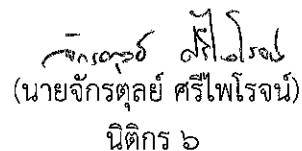 จักรตุลย์ ศรีไพโรจน์
(นายจักรตุลย์ ศรีไพโรจน์)
นิติกร ๖